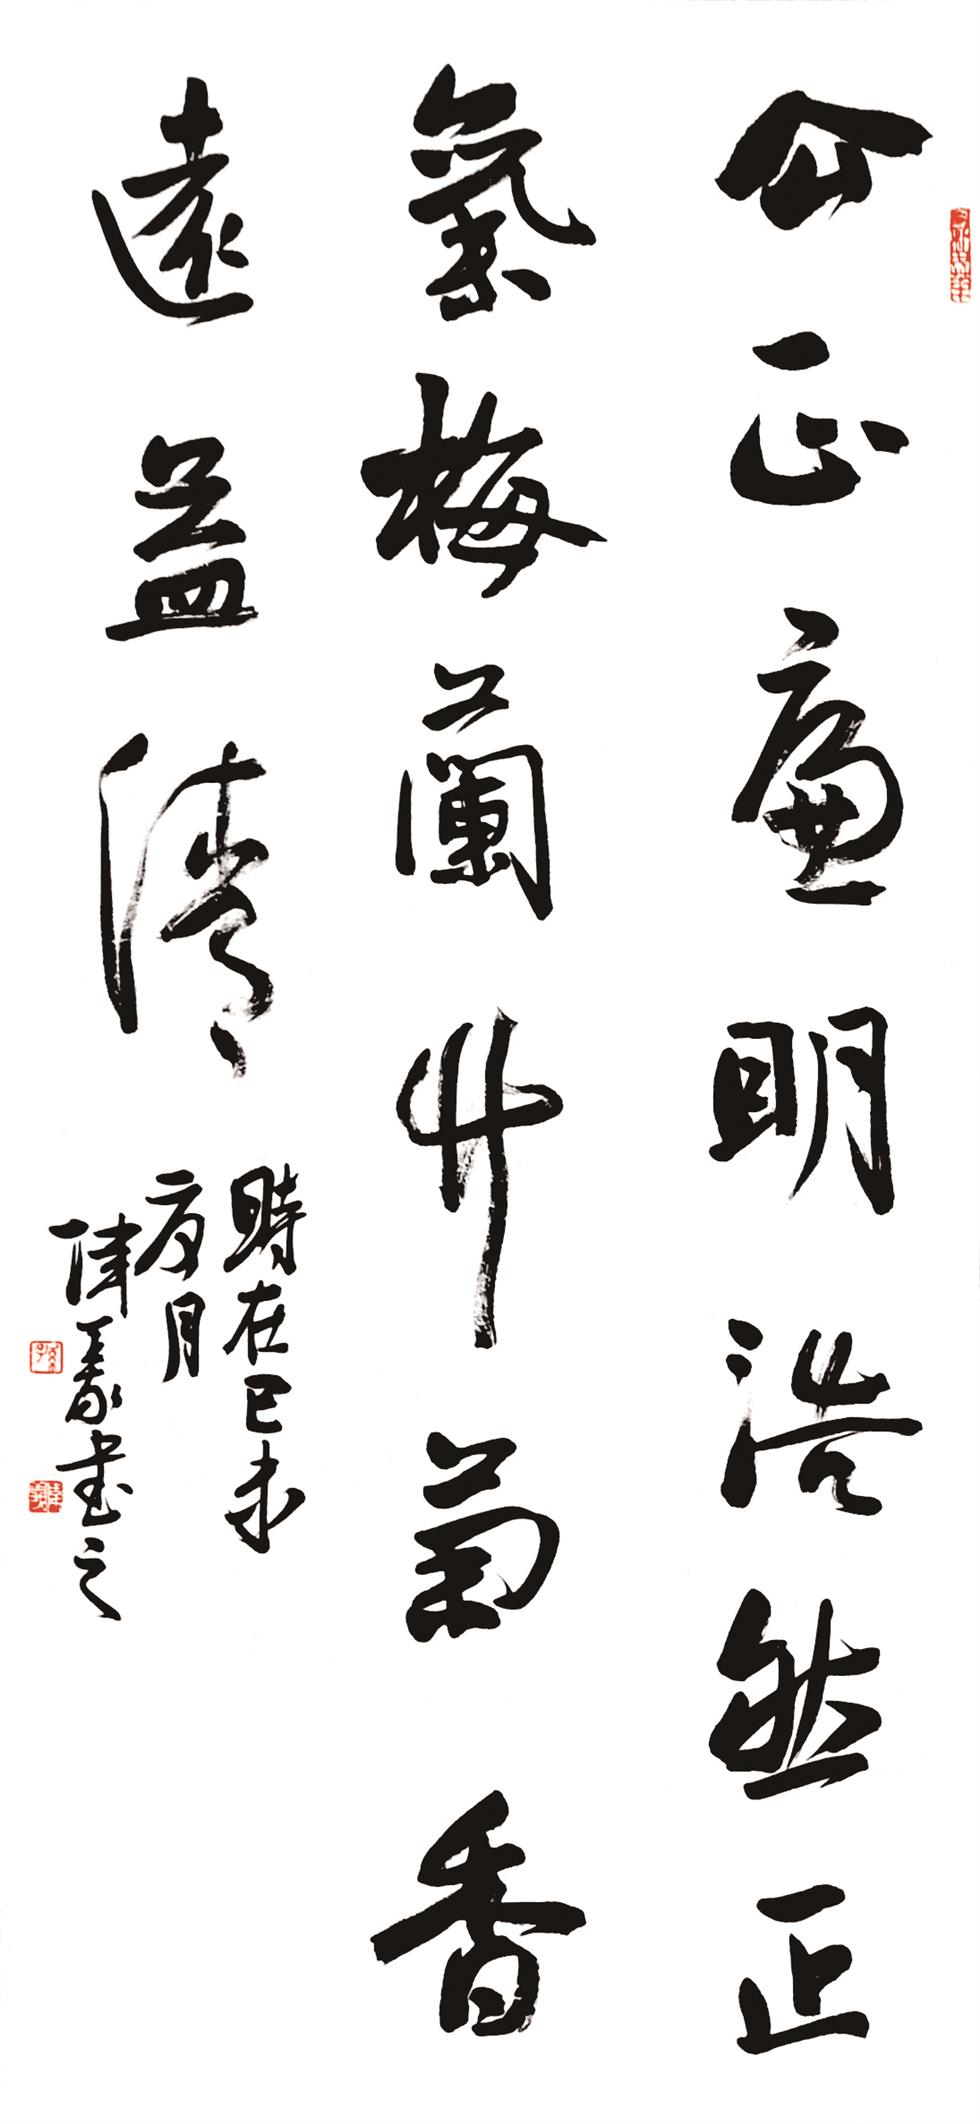 公正廉明浩然正
氣梅蘭竹菊香
遠益清
時在己未
夏月
偉義書之